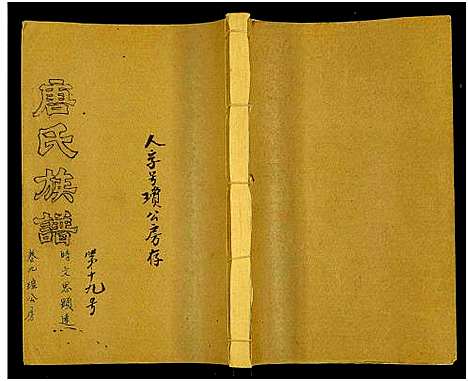 人字号璜公房存
唐氏族譜
第十九号
時文思顯達
卷九璜公房